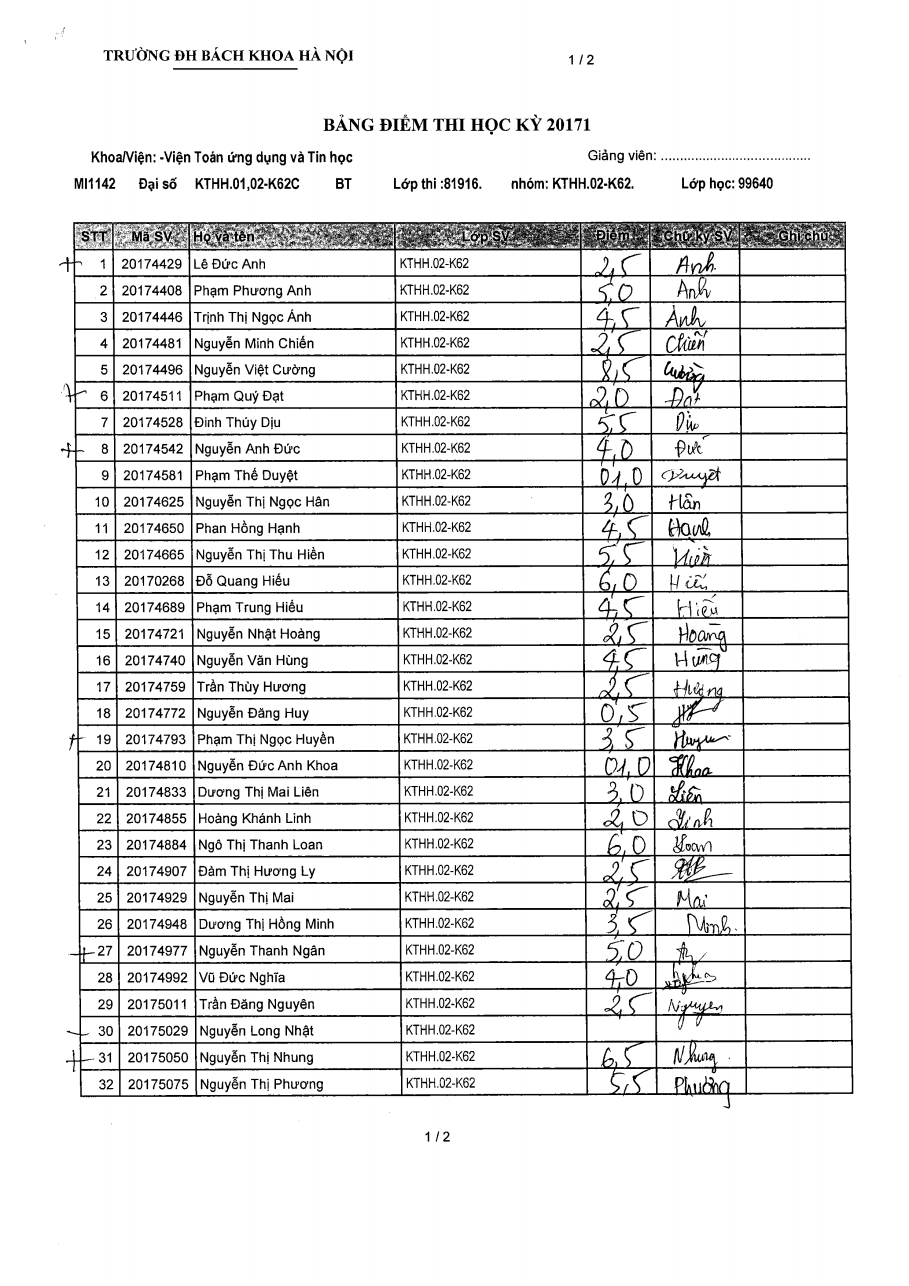 TRƯỜNG ĐH BÁCH KHOA HÀ NỘI 1 / 2
BẢNG ĐIỂM THI HỌC KỲ 20171
Khoa/Viện: -Viện Toán ứng dụng và Tin học Giảng viên: .......................................
MI1142 Đại số KTHH.01,02-K62C BT Lớp thi :81916. nhóm: KTHH.02-K62. Lớp học: 99640
STT Mã SV Họ và tên Lớp SV Điểm Chữ ký SV Ghi chú
1 20174429 Lê Đức Anh KTHH.02-K62 2,5 Anh
2 20174408 Phạm Phương Anh KTHH.02-K62 5,0 Anh
3 20174446 Trịnh Thị Ngọc Ánh KTHH.02-K62 4,5 Ánh
4 20174481 Nguyễn Minh Chiến KTHH.02-K62 2,5 Chiến
5 20174496 Nguyễn Việt Cường KTHH.02-K62 8,5 Cường
6 20174511 Phạm Quý Đạt KTHH.02-K62 2,0 Đạt
7 20174528 Đinh Thúy Dịu KTHH.02-K62 5,5 Dịu
8 20174542 Nguyễn Anh Đức KTHH.02-K62 4,0 Đức
9 20174581 Phạm Thế Duyệt KTHH.02-K62 01,0 Duyệt
10 20174625 Nguyễn Thị Ngọc Hân KTHH.02-K62 3,0 Hân
11 20174650 Phan Hồng Hạnh KTHH.02-K62 4,5 Hạnh
12 20174665 Nguyễn Thị Thu Hiền KTHH.02-K62 5,5 Hiền
13 20170268 Đỗ Quang Hiếu KTHH.02-K62 6,0 Hiếu
14 20174689 Phạm Trung Hiếu KTHH.02-K62 4,5 Hiếu
15 20174721 Nguyễn Nhật Hoàng KTHH.02-K62 2,5 Hoàng
16 20174740 Nguyễn Văn Hùng KTHH.02-K62 4,5 Hùng
17 20174759 Trần Thùy Hương KTHH.02-K62 2,5 Hương
18 20174772 Nguyễn Đăng Huy KTHH.02-K62 0,5
19 20174793 Phạm Thị Ngọc Huyền KTHH.02-K62 3,5 Huyền
20 20174810 Nguyễn Đức Anh Khoa KTHH.02-K62 01,0 Khoa
21 20174833 Dương Thị Mai Liên KTHH.02-K62 3,0 Liên
22 20174855 Hoàng Khánh Linh KTHH.02-K62 2,0 Linh
23 20174884 Ngô Thị Thanh Loan KTHH.02-K62 6,0 Loan
24 20174907 Đàm Thị Hương Ly KTHH.02-K62 2,5
25 20174929 Nguyễn Thị Mai KTHH.02-K62 2,5 Mai
26 20174948 Dương Thị Hồng Minh KTHH.02-K62 3,5 Minh
27 20174977 Nguyễn Thanh Ngân KTHH.02-K62 5,0
28 20174992 Vũ Đức Nghĩa KTHH.02-K62 4,0 Nghĩa
29 20175011 Trần Đăng Nguyên KTHH.02-K62 2,5 Nguyên
30 20175029 Nguyễn Long Nhật KTHH.02-K62
31 20175050 Nguyễn Thị Nhung KTHH.02-K62 6,5 Nhung
32 20175075 Nguyễn Thị Phương KTHH.02-K62 5,5 Phương
1 / 2